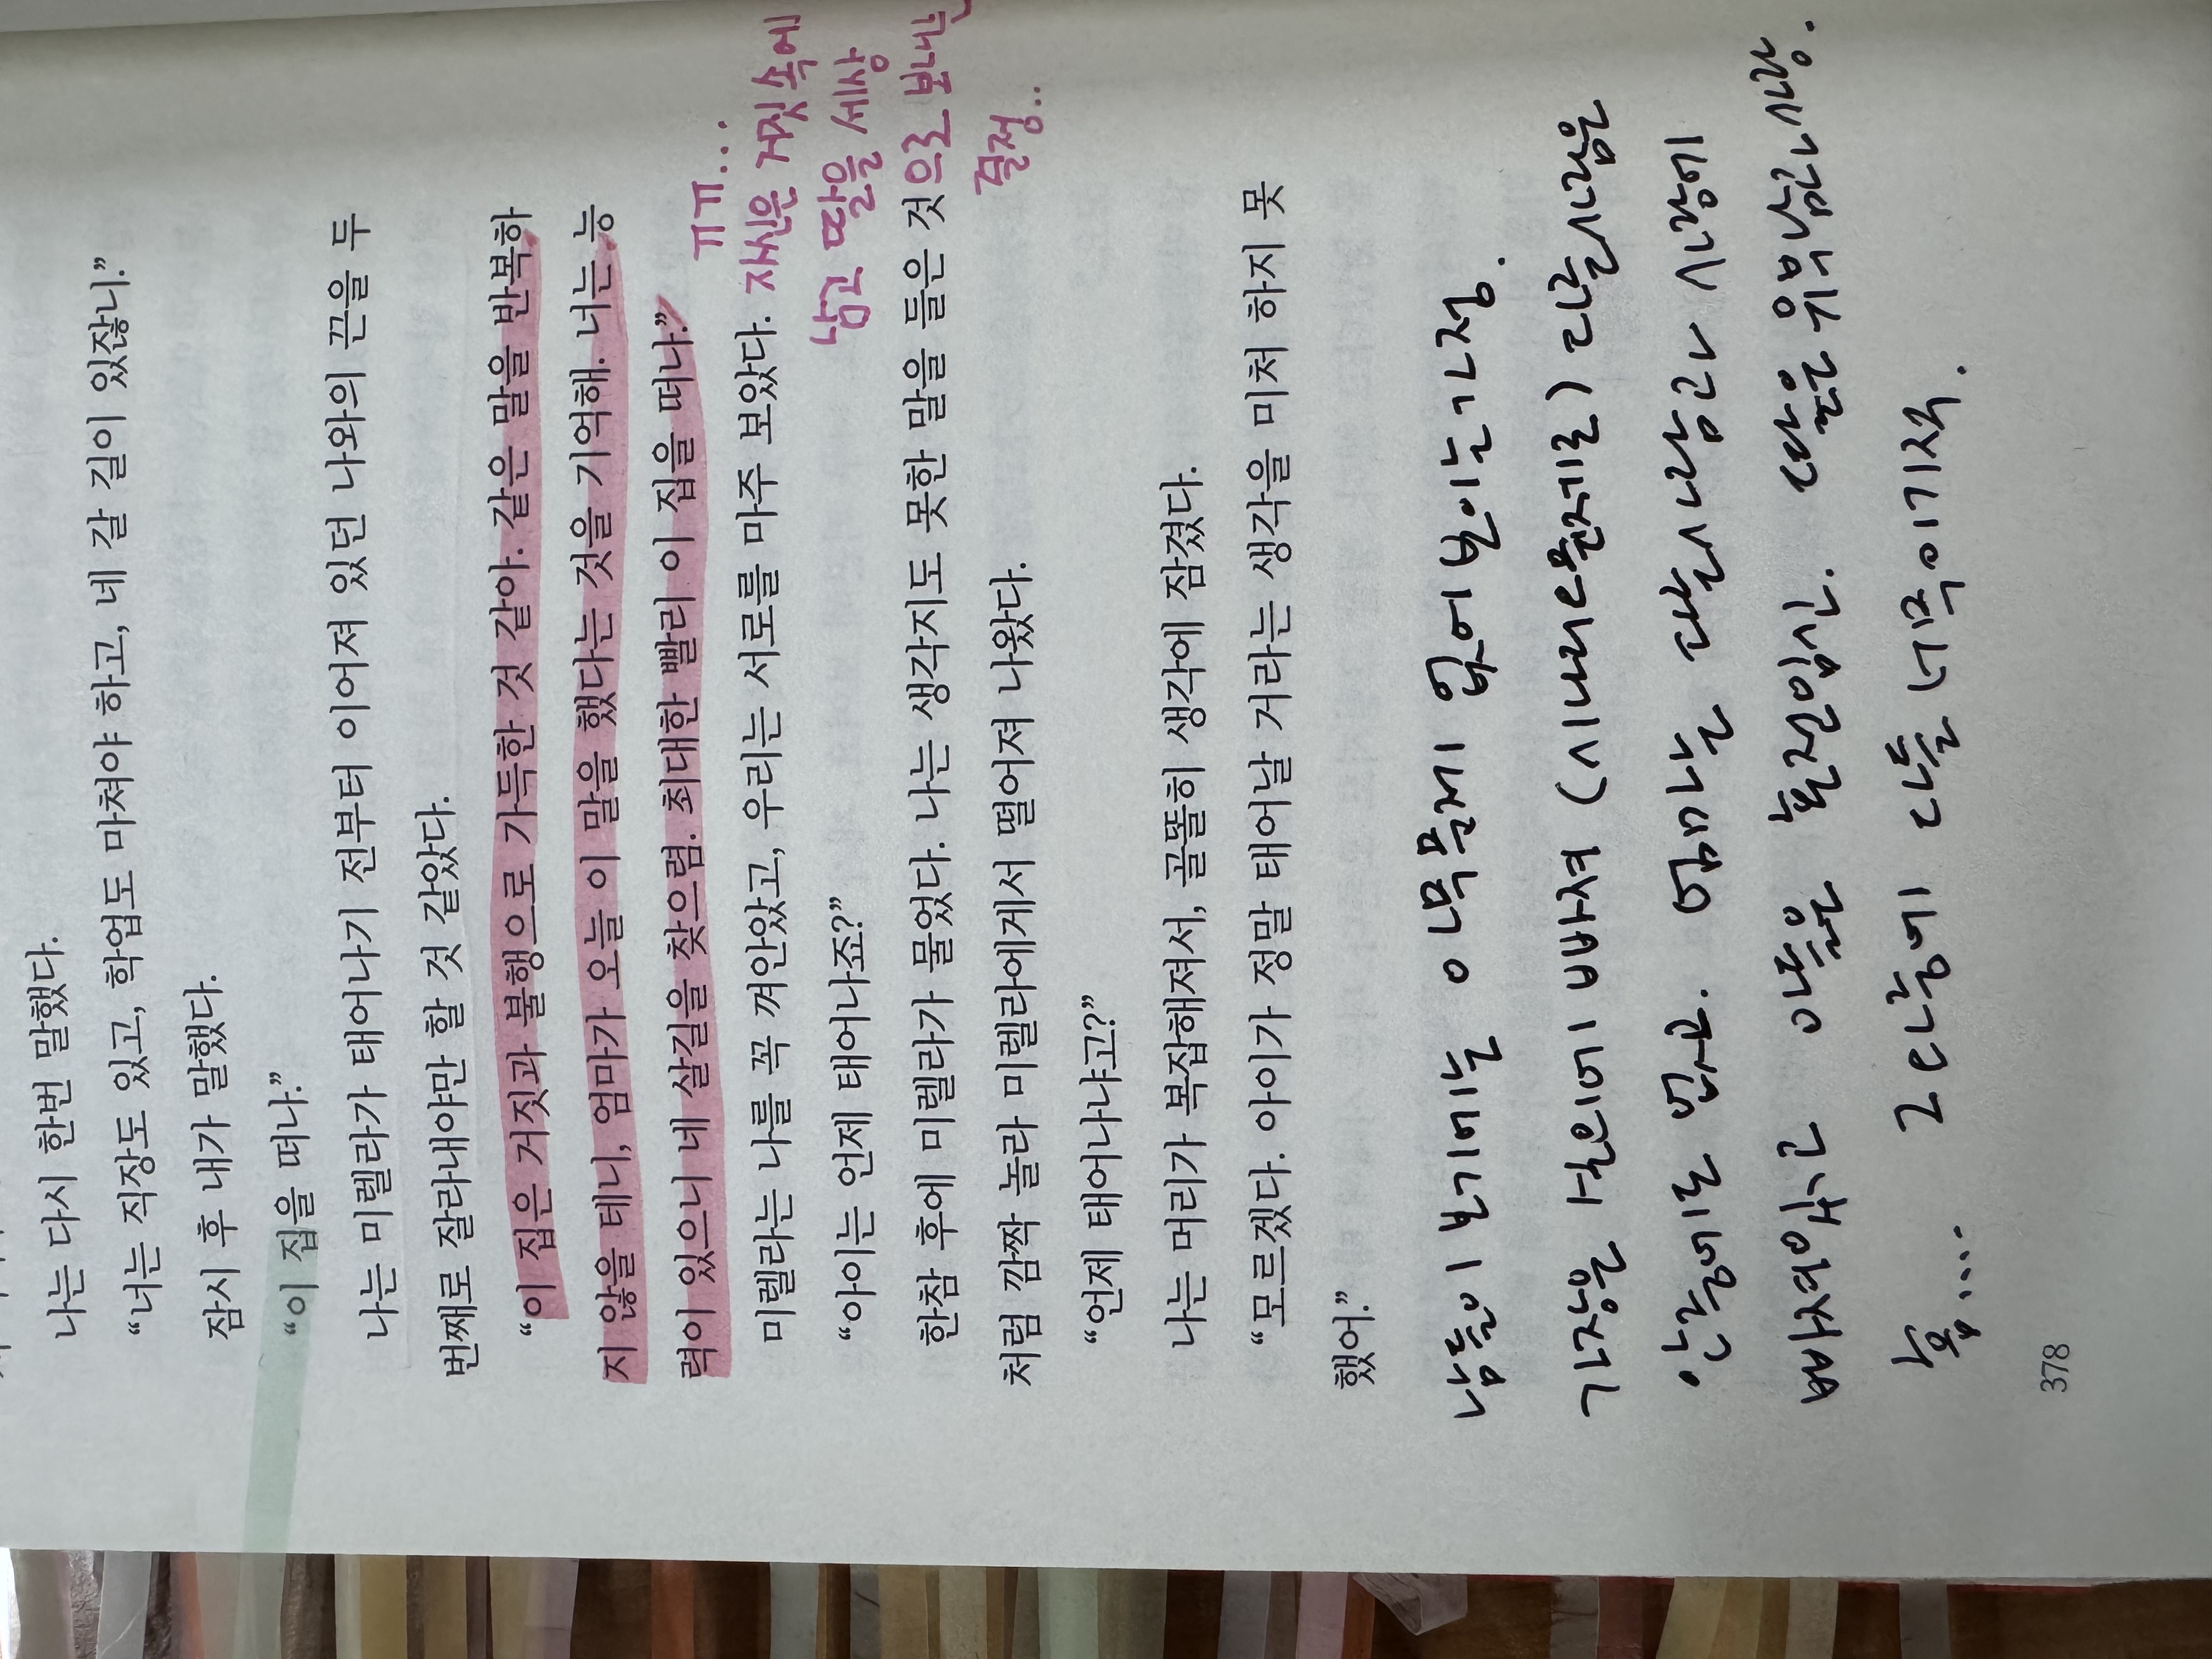 나는 다시 한번 말했다.
“너는 직장도 있고, 학업도 마쳐야 하고, 네 갈 길이 있잖니.”
잠시 후 내가 말했다.
“이 집을 떠나.”
나는 미렐라가 태어나기 전부터 이어져 있던 나와의 끈을 두
번째로 잘라내야만 할 것 같았다.
“이 집은 거짓과 불행으로 가득한 것 같아. 같은 말을 반복하
지 않을 테니, 엄마가 오늘 이 말을 했다는 것을 기억해. 너는 능
력이 있으니 네 살길을 찾으렴. 최대한 빨리 이 집을 떠나.”
ㅠㅠ...
미렐라는 나를 꼭 껴안았고, 우리는 서로를 마주 보았다.
자신은 거짓 속에
“아이는 언제 태어나죠?”
남고 딸을 세상
한참 후에 미렐라가 물었다. 나는 생각지도 못한 말을 들은 것
으로 보낸
처럼 깜짝 놀라 미렐라에게서 떨어져 나왔다.
결정..
“언제 태어나냐고?”
나는 머리가 복잡해져서, 골똘히 생각에 잠겼다.
“모르겠다. 아이가 정말 태어날 거라는 생각을 미처 하지 못
했어.”
남들이 보기에는 아무 문제 없어 보이는 가정.
가장은 일에 빠져 (시나리오 문제로) 다른 사람은
안중에도 없고. 엄마는 다른 사람과 사랑에
빠져있고 아들은 혼전임신. 딸은 유부남과 사랑.
휴.... 그 와중에 다들 너무 이기적.
378